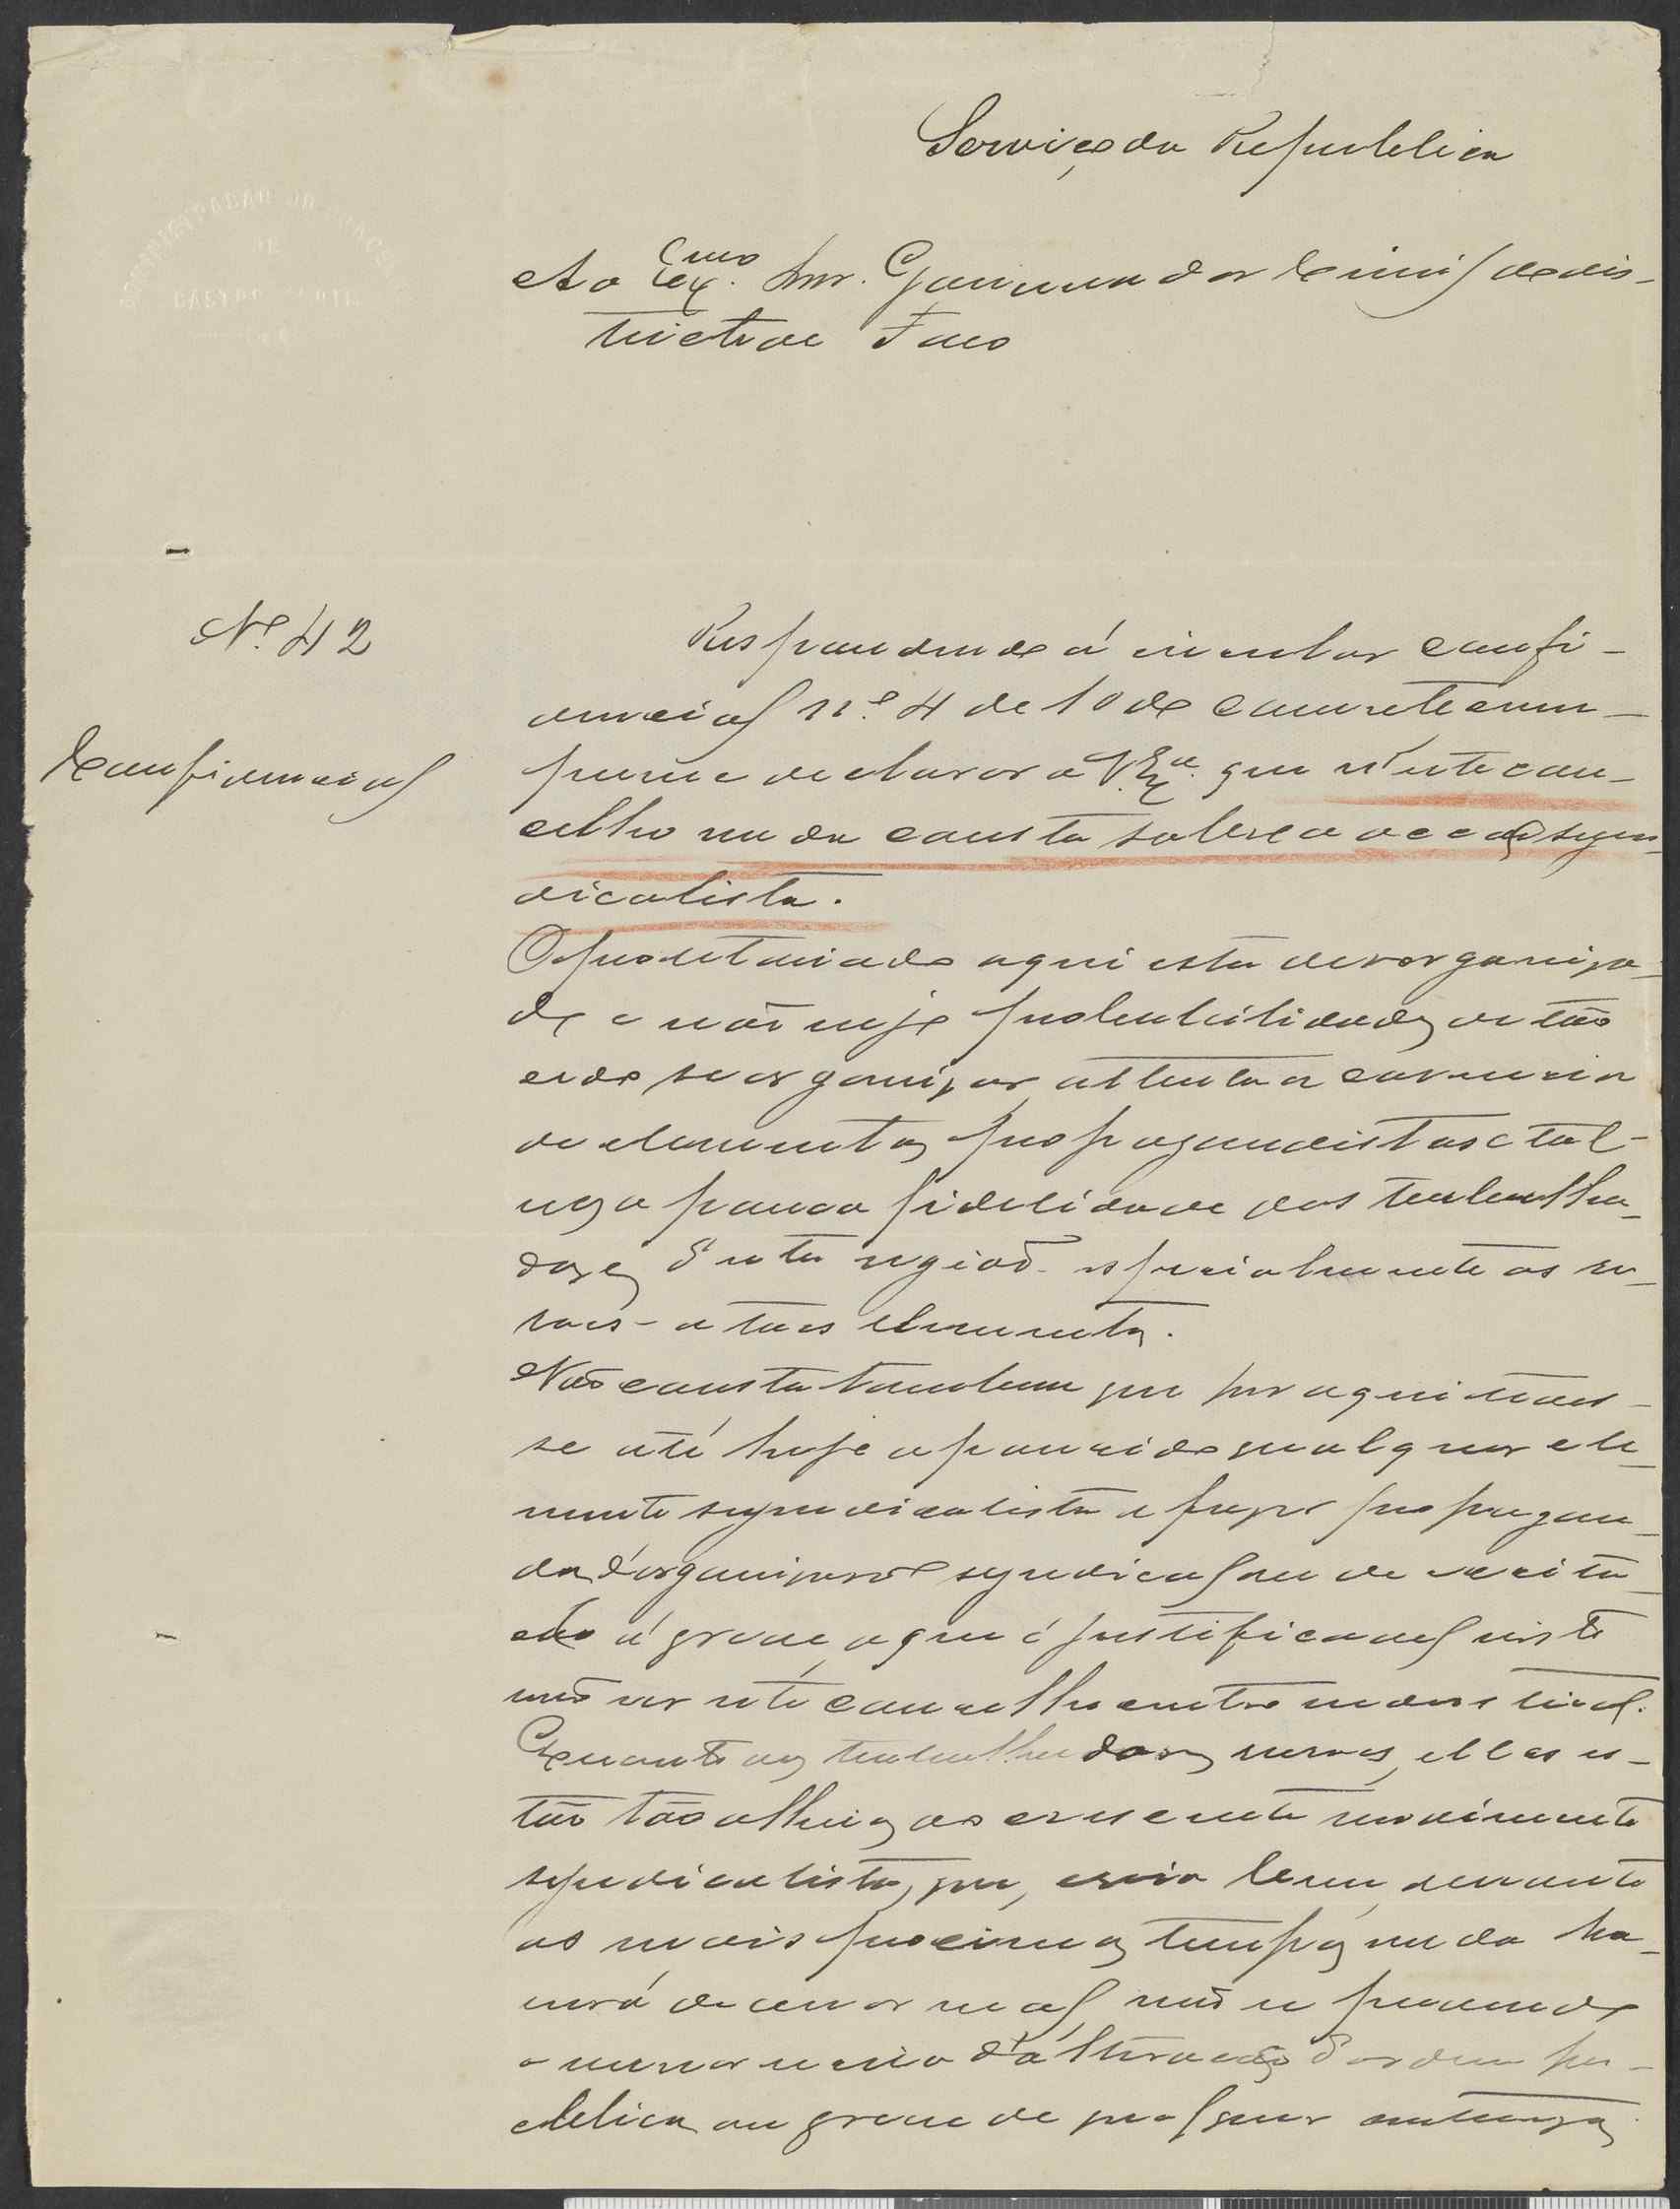 ADMINISTRAÇÃO DO CONCELHO
DE
CASTRO MARIM
Serviço da Republica
Ao Ex.mo Snr. Governador Civil do dis-
tricto de Faro
Nº 42
Confidencial
Respondendo á circular confi-
dencial n.º 4 de 10 do corrente cum-
pre-me declarar a V. Ex.ª que n'este con-
celho nada consta sobre a acção syn-
dicalista.
O proletariado aqui está desorganisa-
do e não vejo probabilidades de tão
cedo se organizar, attenta a carencia
de elementos propagandistas e tal-
vez a pouca fidelidade dos trabalha-
dores d'esta região - especialmente os ru-
raes - a taes elementos.
Não consta tambem que por aqui tives-
se até hoje apparecido qualquer ele-
mento syndicalista a fazer propagan-
da d'organização syndical ou de incita-
ção á greve, o que é justificavel visto
não ser este concelho centro industrial.
Quanto aos trabalhadores ruraes, elles es-
tão tão alheios ao crescente movimento
syndicalista, que, creio bem, durante
os mais proximos tempos nada ha-
verá de anormal, não se prevendo
a menor ideia d'alteração d'ordem pu-
blica ou greve de qualquer natureza.